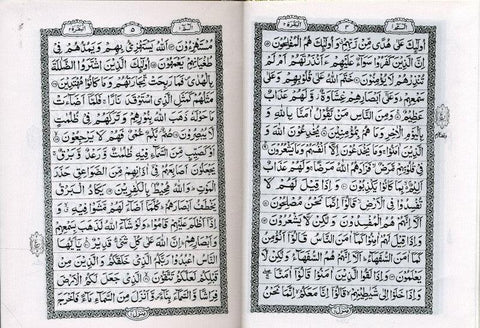 البقرة ٢
اُولٰٓئِكَ عَلٰى هُدًى مِّنْ رَّبِّهِمْ وَاُولٰٓئِكَ هُمُ الْمُفْلِحُوْنَ
اِنَّ الَّذِيْنَ كَفَرُوْا سَوَآءٌ عَلَيْهِمْ ءَاَنْذَرْتَهُمْ اَمْ لَمْ
تُنْذِرْهُمْ لَا يُؤْمِنُوْنَ خَتَمَ اللّٰهُ عَلٰى قُلُوْبِهِمْ وَعَلٰى
سَمْعِهِمْ وَعَلٰٓى اَبْصَارِهِمْ غِشَاوَةٌ وَّلَهُمْ عَذَابٌ
عَظِيْمٌ وَمِنَ النَّاسِ مَنْ يَّقُوْلُ اٰمَنَّا بِاللّٰهِ وَ
بِالْيَوْمِ الْاٰخِرِ وَمَا هُمْ بِمُؤْمِنِيْنَ يُخٰدِعُوْنَ اللّٰهَ وَ
الَّذِيْنَ اٰمَنُوْا وَمَا يَخْدَعُوْنَ اِلَّآ اَنْفُسَهُمْ وَمَا يَشْعُرُوْنَ
فِيْ قُلُوْبِهِمْ مَّرَضٌ فَزَادَهُمُ اللّٰهُ مَرَضًا وَلَهُمْ عَذَابٌ
اَلِيْمٌ بِمَا كَانُوْا يَكْذِبُوْنَ وَاِذَا قِيْلَ لَهُمْ لَا
تُفْسِدُوْا فِى الْاَرْضِ قَالُوْٓا اِنَّمَا نَحْنُ مُصْلِحُوْنَ
اَلَآ اِنَّهُمْ هُمُ الْمُفْسِدُوْنَ وَلٰكِنْ لَّا يَشْعُرُوْنَ
وَاِذَا قِيْلَ لَهُمْ اٰمِنُوْا كَمَآ اٰمَنَ النَّاسُ قَالُوْٓا اَنُؤْمِنُ
كَمَآ اٰمَنَ السُّفَهَآءُ اَلَآ اِنَّهُمْ هُمُ السُّفَهَآءُ وَلٰكِنْ لَّا
يَعْلَمُوْنَ وَاِذَا لَقُوا الَّذِيْنَ اٰمَنُوْا قَالُوْٓا اٰمَنَّا
وَاِذَا خَلَوْا اِلٰى شَيٰطِيْنِهِمْ قَالُوْٓا اِنَّا مَعَكُمْ اِنَّمَا نَحْنُ
البقرة ٢
٥
مُسْتَهْزِءُوْنَ اَللّٰهُ يَسْتَهْزِئُ بِهِمْ وَيَمُدُّهُمْ فِيْ
طُغْيَانِهِمْ يَعْمَهُوْنَ اُولٰٓئِكَ الَّذِيْنَ اشْتَرَوُا الضَّلٰلَةَ
بِالْهُدٰى فَمَا رَبِحَتْ تِّجَارَتُهُمْ وَمَا كَانُوْا مُهْتَدِيْنَ
مَثَلُهُمْ كَمَثَلِ الَّذِى اسْتَوْقَدَ نَارًا فَلَمَّآ اَضَآءَتْ
مَا حَوْلَهٗ ذَهَبَ اللّٰهُ بِنُوْرِهِمْ وَتَرَكَهُمْ فِيْ ظُلُمٰتٍ
لَّا يُبْصِرُوْنَ صُمٌّۢ بُكْمٌ عُمْيٌ فَهُمْ لَا يَرْجِعُوْنَ
اَوْ كَصَيِّبٍ مِّنَ السَّمَآءِ فِيْهِ ظُلُمٰتٌ وَّرَعْدٌ وَّبَرْقٌ
يَجْعَلُوْنَ اَصَابِعَهُمْ فِيْٓ اٰذَانِهِمْ مِّنَ الصَّوَاعِقِ حَذَرَ
الْمَوْتِ وَاللّٰهُ مُحِيْطٌۢ بِالْكٰفِرِيْنَ يَكَادُ الْبَرْقُ
يَخْطَفُ اَبْصَارَهُمْ كُلَّمَآ اَضَآءَ لَهُمْ مَّشَوْا فِيْهِ
وَاِذَآ اَظْلَمَ عَلَيْهِمْ قَامُوْا وَلَوْ شَآءَ اللّٰهُ لَذَهَبَ بِسَمْعِهِمْ
وَاَبْصَارِهِمْ اِنَّ اللّٰهَ عَلٰى كُلِّ شَيْءٍ قَدِيْرٌ يٰٓاَيُّهَا
النَّاسُ اعْبُدُوْا رَبَّكُمُ الَّذِيْ خَلَقَكُمْ وَالَّذِيْنَ مِنْ
قَبْلِكُمْ لَعَلَّكُمْ تَتَّقُوْنَ الَّذِيْ جَعَلَ لَكُمُ الْاَرْضَ
فِرَاشًا وَّالسَّمَآءَ بِنَآءً وَّاَنْزَلَ مِنَ السَّمَآءِ مَآءً فَاَخْرَجَ